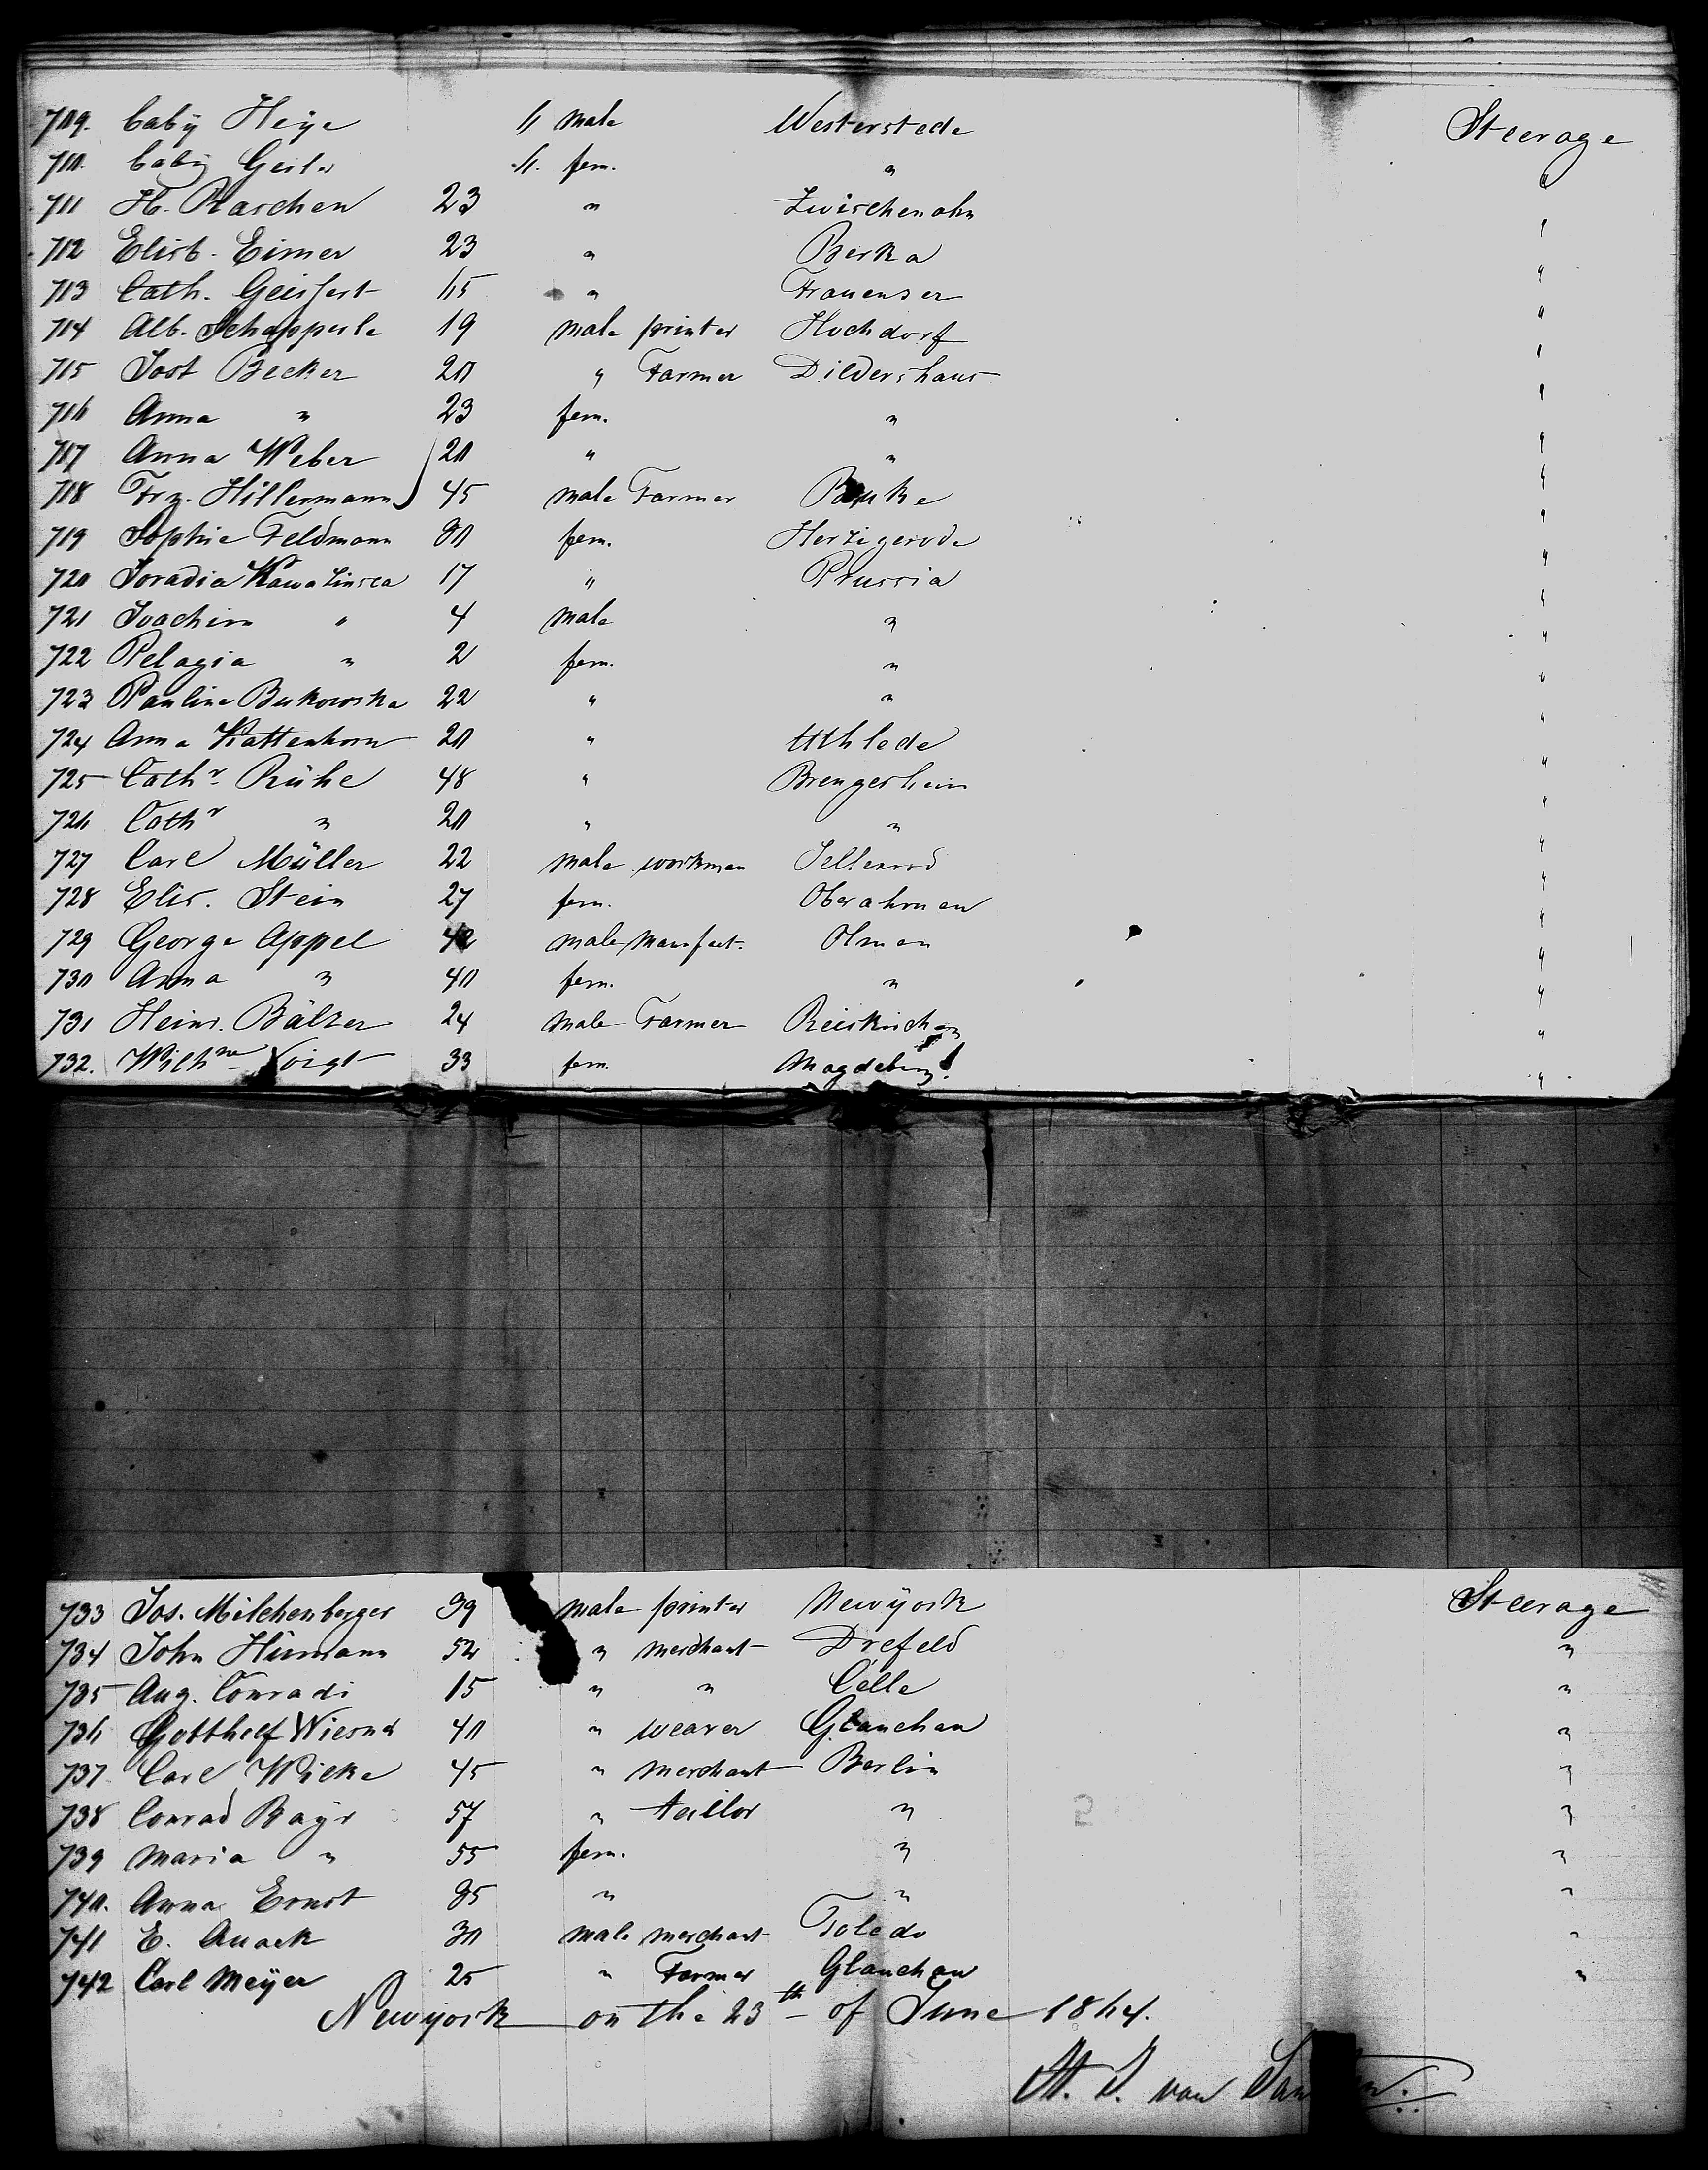 709. baby Heye 11 male Westerstede Steerage
710. baby Geiler 11. fem. " "
711 H. Raschen 23 " Zwischenahn "
712 Elisb. Eimer 23 " Berka "
713 Cath. Geisfert 65 " Frauensee "
714 Alb. Schepperle 19 male printer Hochdorf "
715 Jost Becker 20 " Farmer Dildershaus "
716 Anna " 23 fem. " "
717 Anna Weber 20 " " "
718 Frz. Hillermann 45 male Farmer "
719 Sophie Feldmann fem. Herzigerode "
720 Joradia Kawalinsca 17 " Prussia "
721 Joachim " 4 male " "
722 Pelagia " 2 fem. " "
723 Pauline Bukowska 22 " " "
724 Anna Kattenhorn 20 " Uthlede "
725 Cathr. Rühe 48 " Brengersheim "
726 Cathr " 20 " " "
727 Carl Müller 22 male workman Sellenrod "
728 Elis. Stein 27 fem. Oberahmen "
729 George Appel 42 male Manufact. Olmen "
730 Anna " 40 fem. " "
731 Heinr. Bälzer 24 male Farmer Reiskirchen "
732. Wilhne. Voigt 33 fem. Magdeburg "
733 Jos. Milchenberger 39 male printer Newyork Steerage
734 John Hürmann 52 " merchant Drefeld "
735 Aug. Conradi 15 " " Celle "
736 Gotthelf Wiesner 40 " weaver Glauchau "
737 Carl Wilke 45 " merchant Berlin "
738 Conrad Bayr 57 " taillor " "
739 Maria " 55 fem. " "
740. Anna Ernst 35 " " "
741 E. Quack 30 male merchant Toledo "
742 Carl Meyer 25 " Farmer Glauchau "
Newyork on the 23th of June 1864.
H. J. von